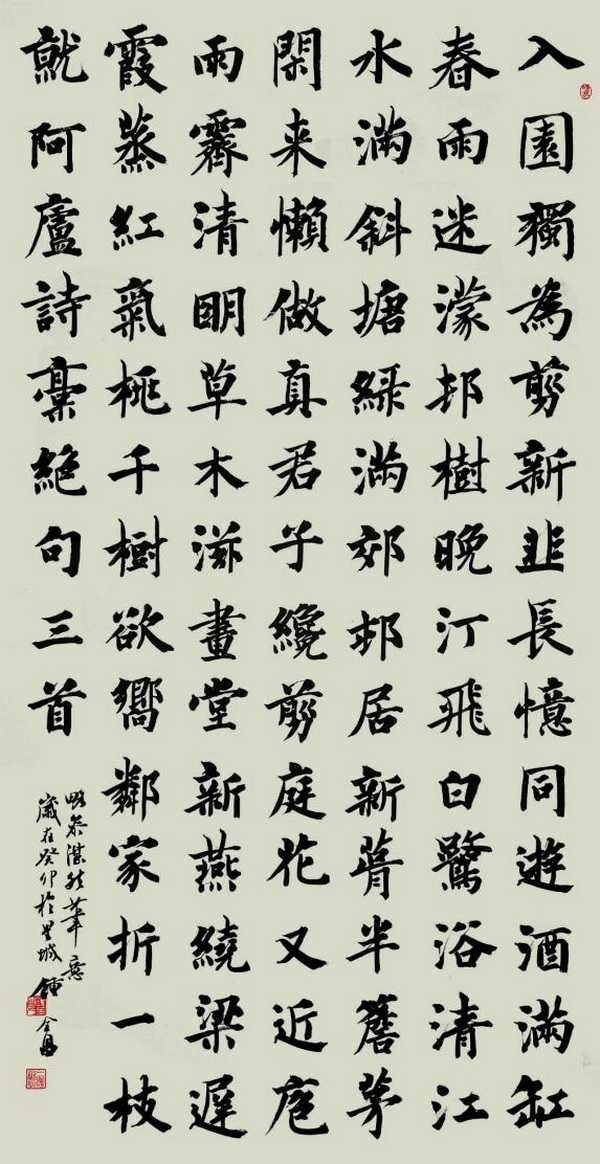 入園獨為剪新韭長憶同遊酒滿缸
春雨迷濛邨樹晚汀飛白鷺浴清江
水滿斜塘綠滿郊邨居新葺半簷茅
閑来懶做真君子纔剪庭花又近庖
雨霽清明草木滋畫堂新燕繞梁遲
霞蒸紅氣桃千樹欲嚮鄰家折一枝
就阿廬詩稾絕句三首
略參湛然筆意
歲在癸卯於星城鍾全昌